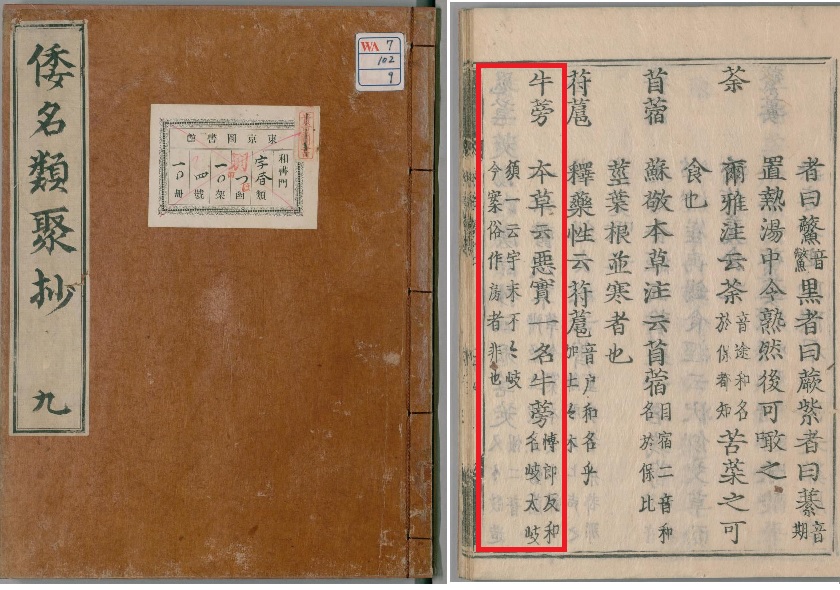 倭名類聚抄
九
WA 7
102
9
東京圖書館
和書門
字書類
函
一〇架
四號
一〇冊
者曰虌音鱉黒者曰蕨紫者曰藄音期
置熱湯中令熟然後可噉之
荼 爾雅注云荼音途和名於保者知苦菜之可
食也
苜蓿 蘇敬本草注云苜蓿目宿二音和名於保比
莖葉根並寒者也
苻蔰 釋藥性云苻蔰音户和名乎加止々木
牛蒡 本草云悪實一名牛蒡博郎反和名岐太岐
須一云宇末不々岐
今案俗作房者非也